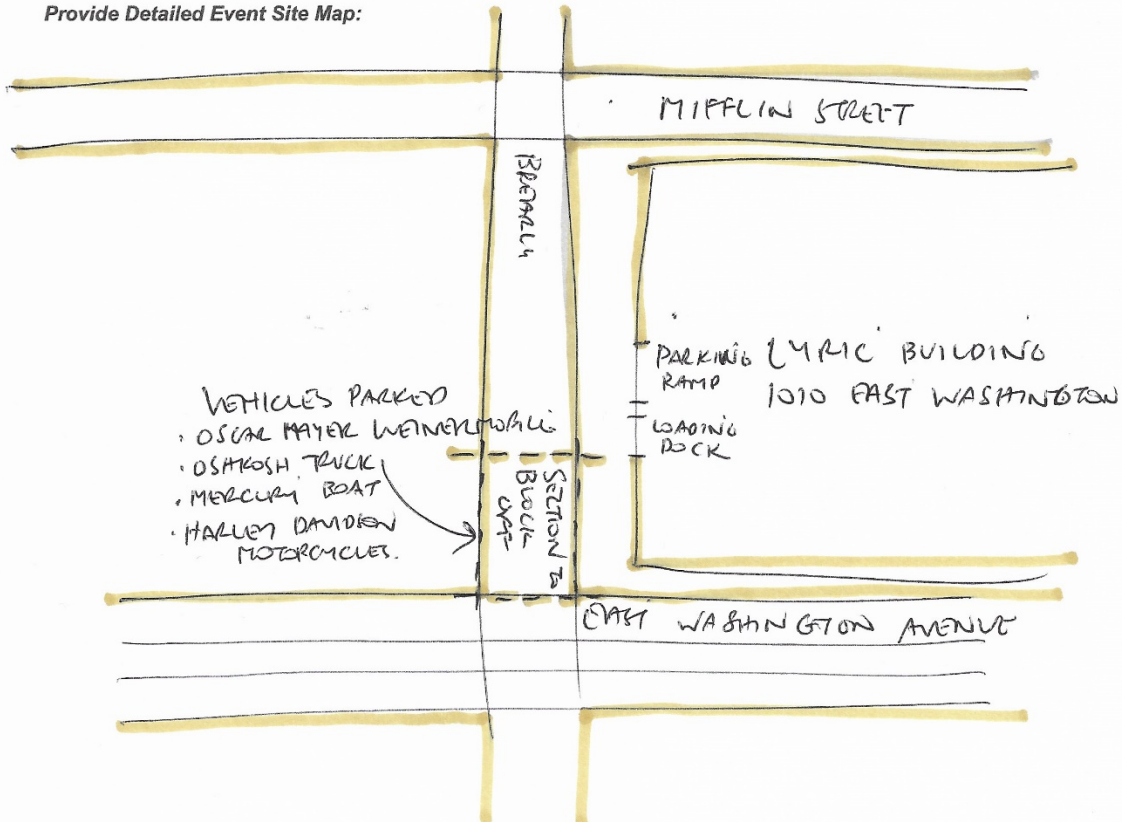 Provide Detailed Event Site Map:
MIFFLIN STREET
BREARLY
PARKING
RAMP
LYRIC BUILDING
1010 EAST WASHINGTON
LOADING
DOCK
VEHICLES PARKED
· OSCAR MAYER WEINERMOBILE
· OSHKOSH TRUCK
· MERCURY BOAT
· HARLEY DAVIDSON
MOTORCYCLES.
SECTION TO
BLOCK
OFF
EAST WASHINGTON AVENUE